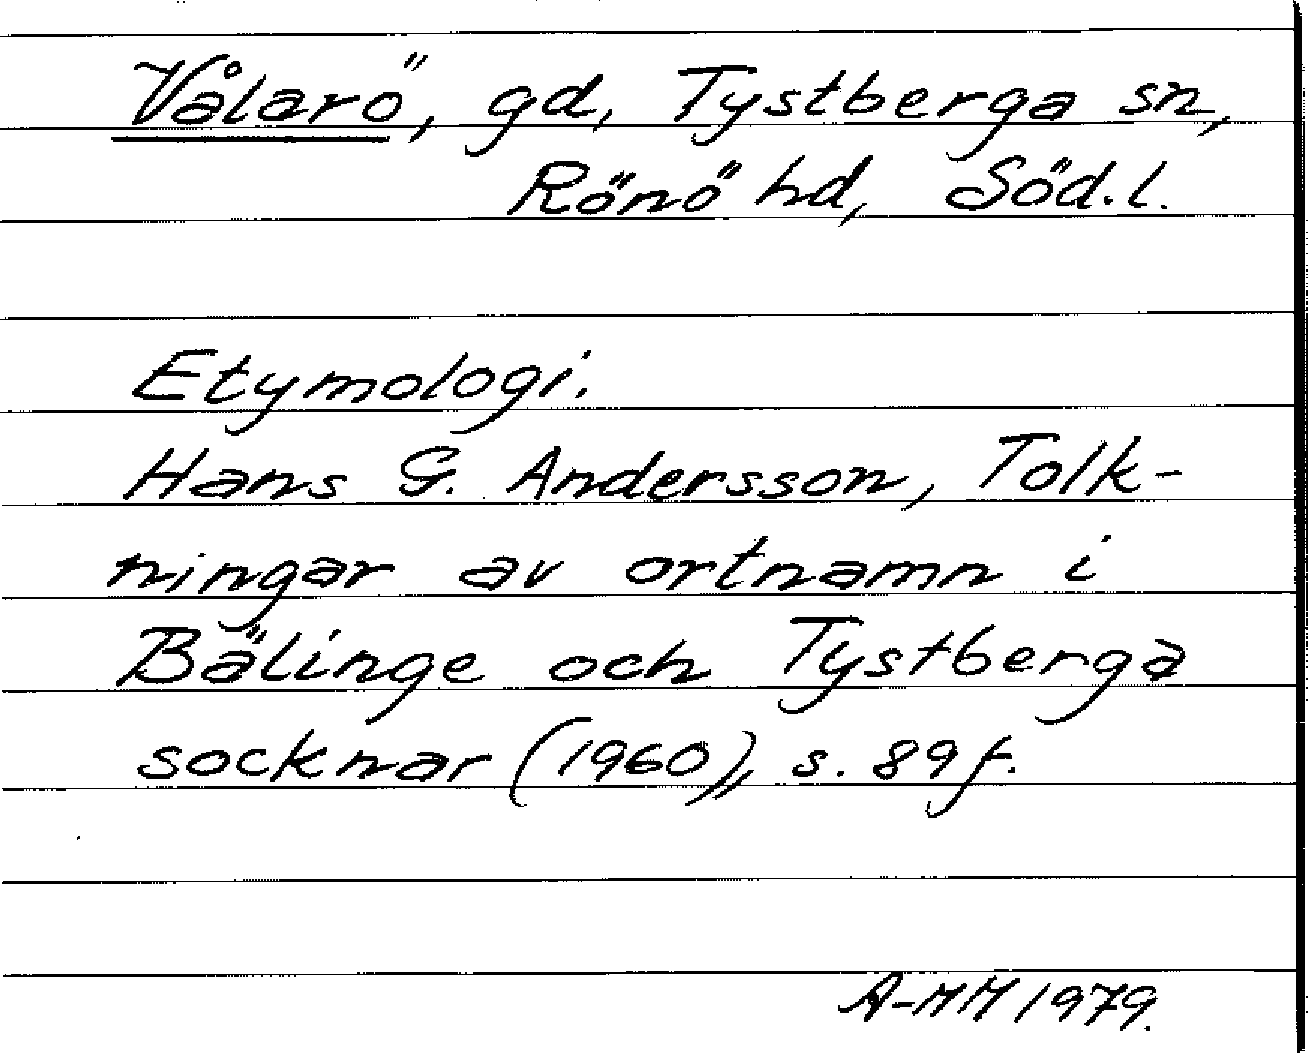 Vålarö, gd, Tystberga sn,
Rönö hd, Söd.l.
Etymologi.
Hans G. Andersson, Tolk-
ningar av ortnamn i
Bälinge och Tystberga
socknar (1960), s. 89 f.
A-MM 1979.